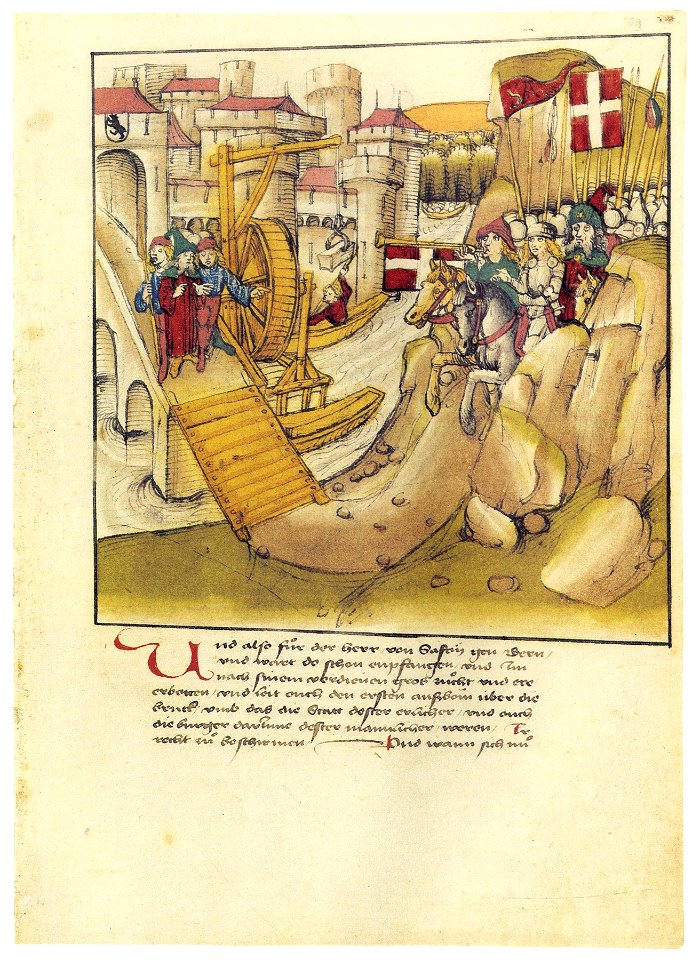 Und also fůr der herr von Safoÿ gen Bern /
und wart do schon enpfangen / und Im
nach sinem verdienen gros zůcht und ere
erbotten / und leit ouch den ersten anstboim über die
brück / umb das die Statt dester erlicher / und ouch
die burger darinne dester manlicher / weren / Ir
recht zů beschirmen / Und wann sich nů